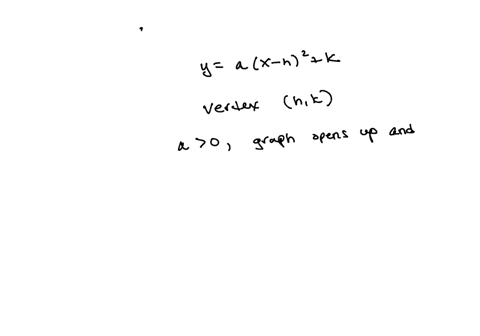 y = a(x-h)²+k
vertex (h,k)
a>0, graph opens up and